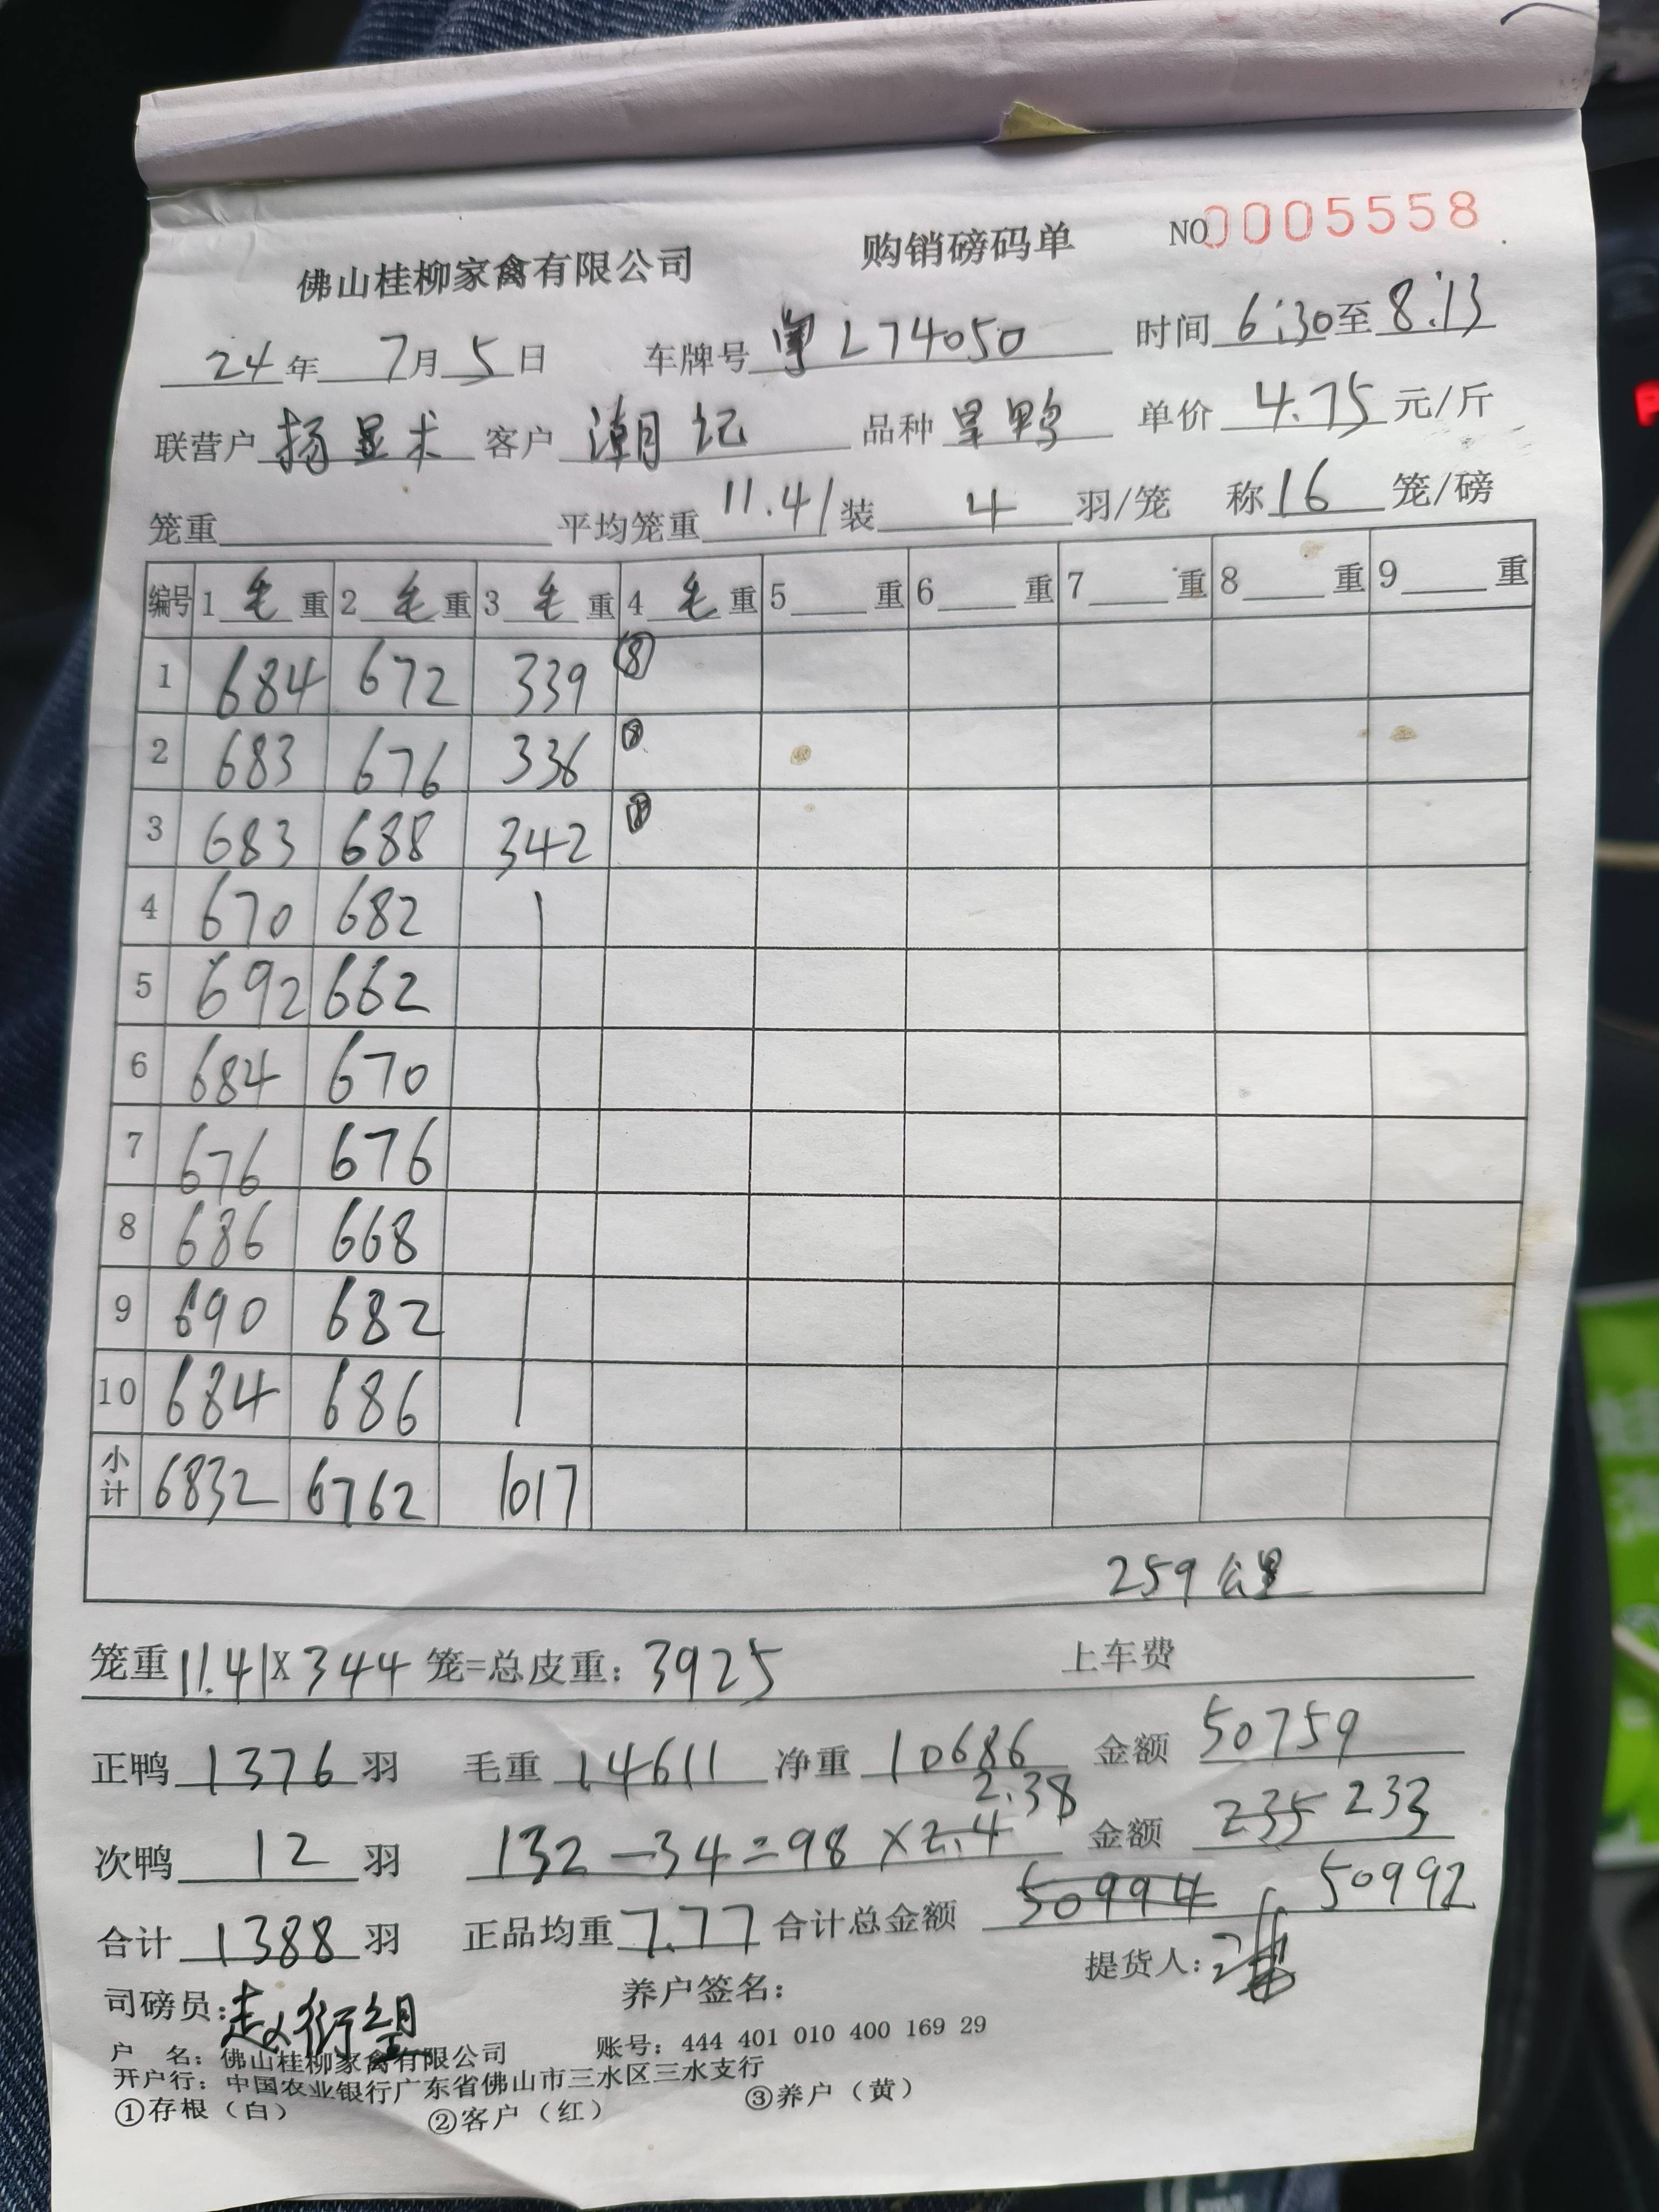 佛山桂柳家禽有限公司 购销磅码单 NO0005558
24年 7月 5日 车牌号 粤L74050 时间 6:30至 8:13
联营户 杨显术 客户 潮记 品种 旱鸭 单价 4.75 元/斤
笼重 平均笼重 11.41 装 4 羽/笼 称 16 笼/磅
编号 1 毛 重 2 毛 重 3 毛 重 4 毛 重 5 重 6 重 7 重 8 重 9 重
1 684 672 339 ⑧
2 683 676 336 ⑧
3 683 688 342 ⑧
4 670 682
5 692 662
6 684 670
7 676 676
8 686 668
9 690 682
10 684 686
小计 6832 6762 1017
259公里
笼重 11.41 X 344 笼=总皮重: 3925 上车费
正鸭 1376 羽 毛重 14611 净重 10686 金额 50759
2.38
次鸭 12 羽 132-34=98×2.4 金额 235 233
合计 1388 羽 正品均重 7.77 合计总金额 50994 50992
司磅员: 养户签名: 提货人:
户 名: 佛山桂柳家禽有限公司 账号: 444 401 010 400 169 29
开户行: 中国农业银行广东省佛山市三水区三水支行
①存根(白) ②客户(红) ③养户(黄)